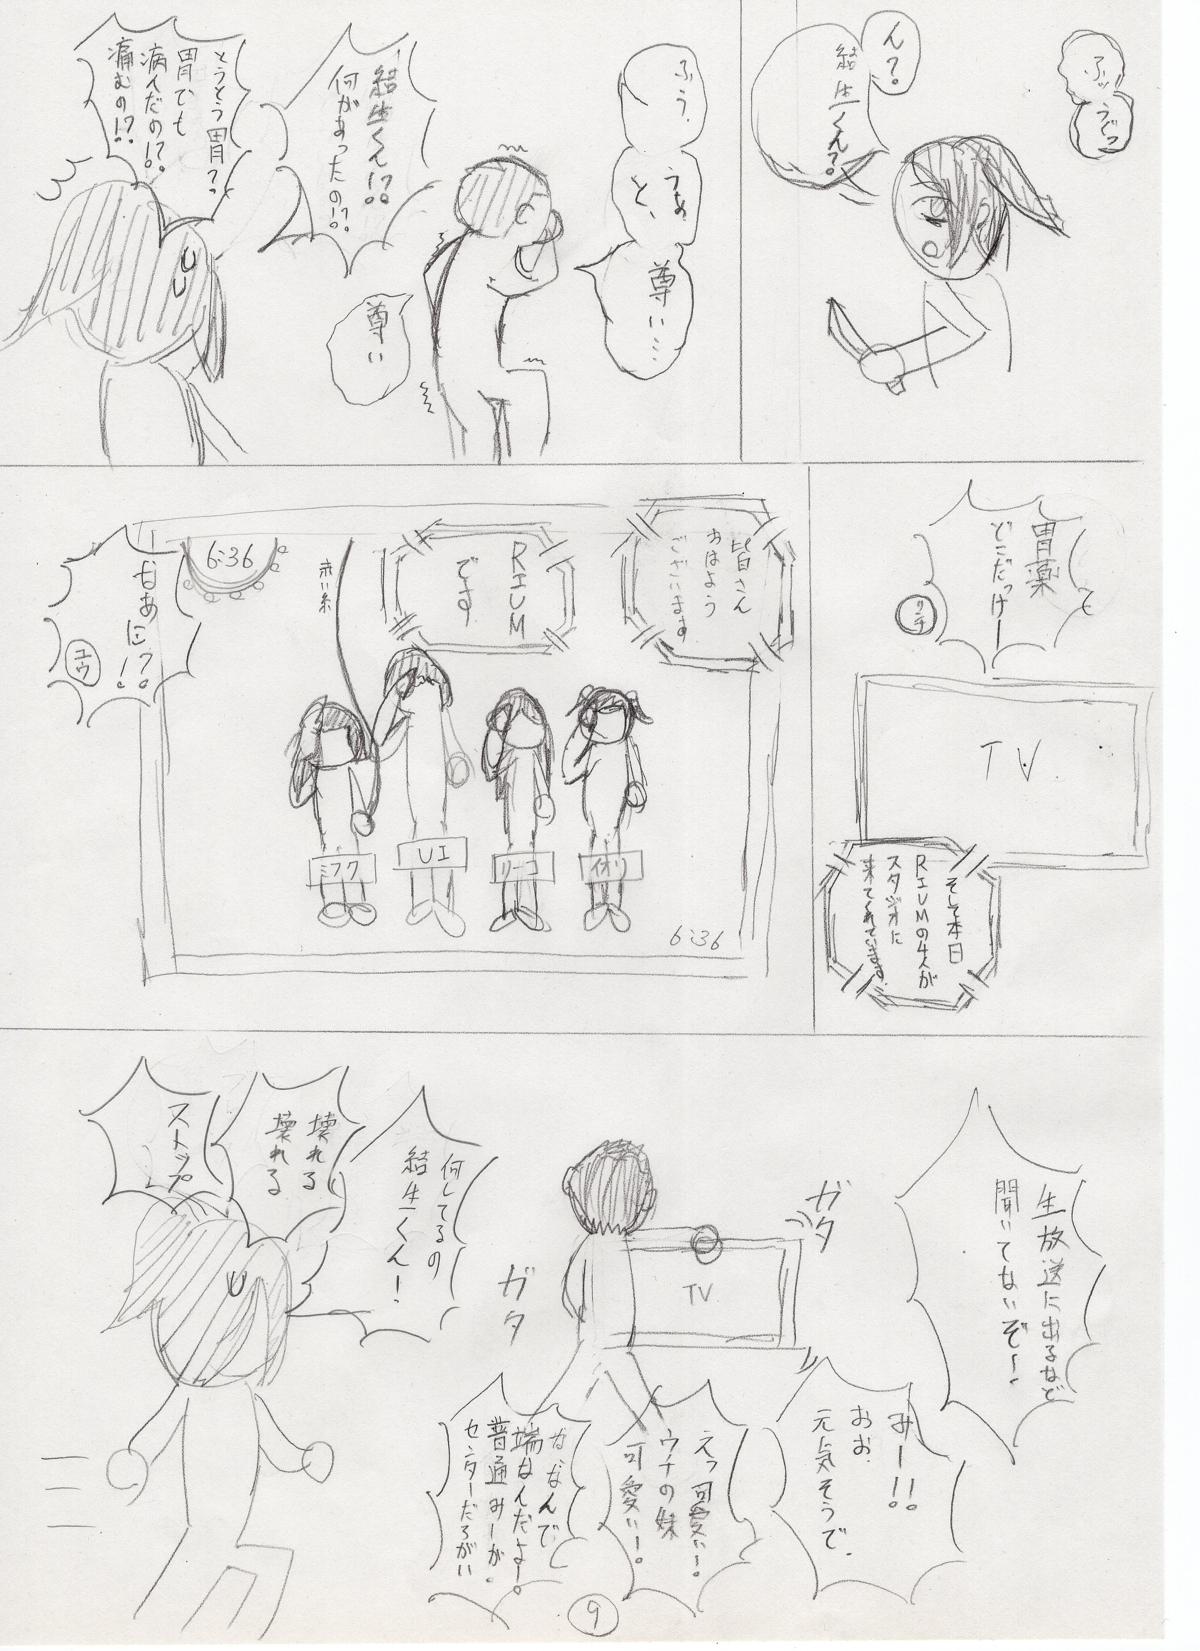 ふッ
うぐっ
ん?
結生くん?
ふぅ.
うぁ
と、
尊い…
尊い
結生くん!?
何があったの!?
とうとう胃?
胃でも
病んだの!?
痛むの!?
胃薬
どこだっけー
リチ
TV
そして本日
RIUMの4人が
スタジオに
来てくれています.
皆さん
おはよう
ございます
RIUM
です
赤い糸
6:36
なぁに?!
ユウ
ミフク
UI
リーコ
イオリ
6:36
生放送に出るなど
聞いてないぞー!
みー!!
おお
元気そうで.
えっ可愛い!
ウチの妹
可愛い!
なんで
端なんだよー!
普通みーが
センターだろがい
ガタ
ガタ
TV
何してるの
結生くん!
壊れる
壊れる
ストップ
9